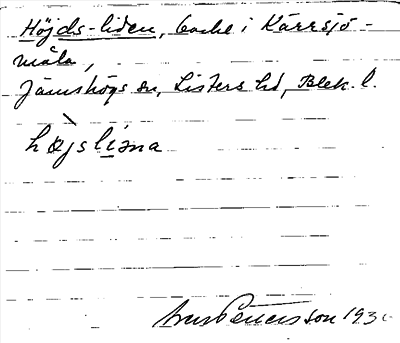 Höjds-liden, backe i Kärrsjö-
måla,
Jämshögs sn, Listers hd, Blek. l.
højsliəna
Pettersson 193